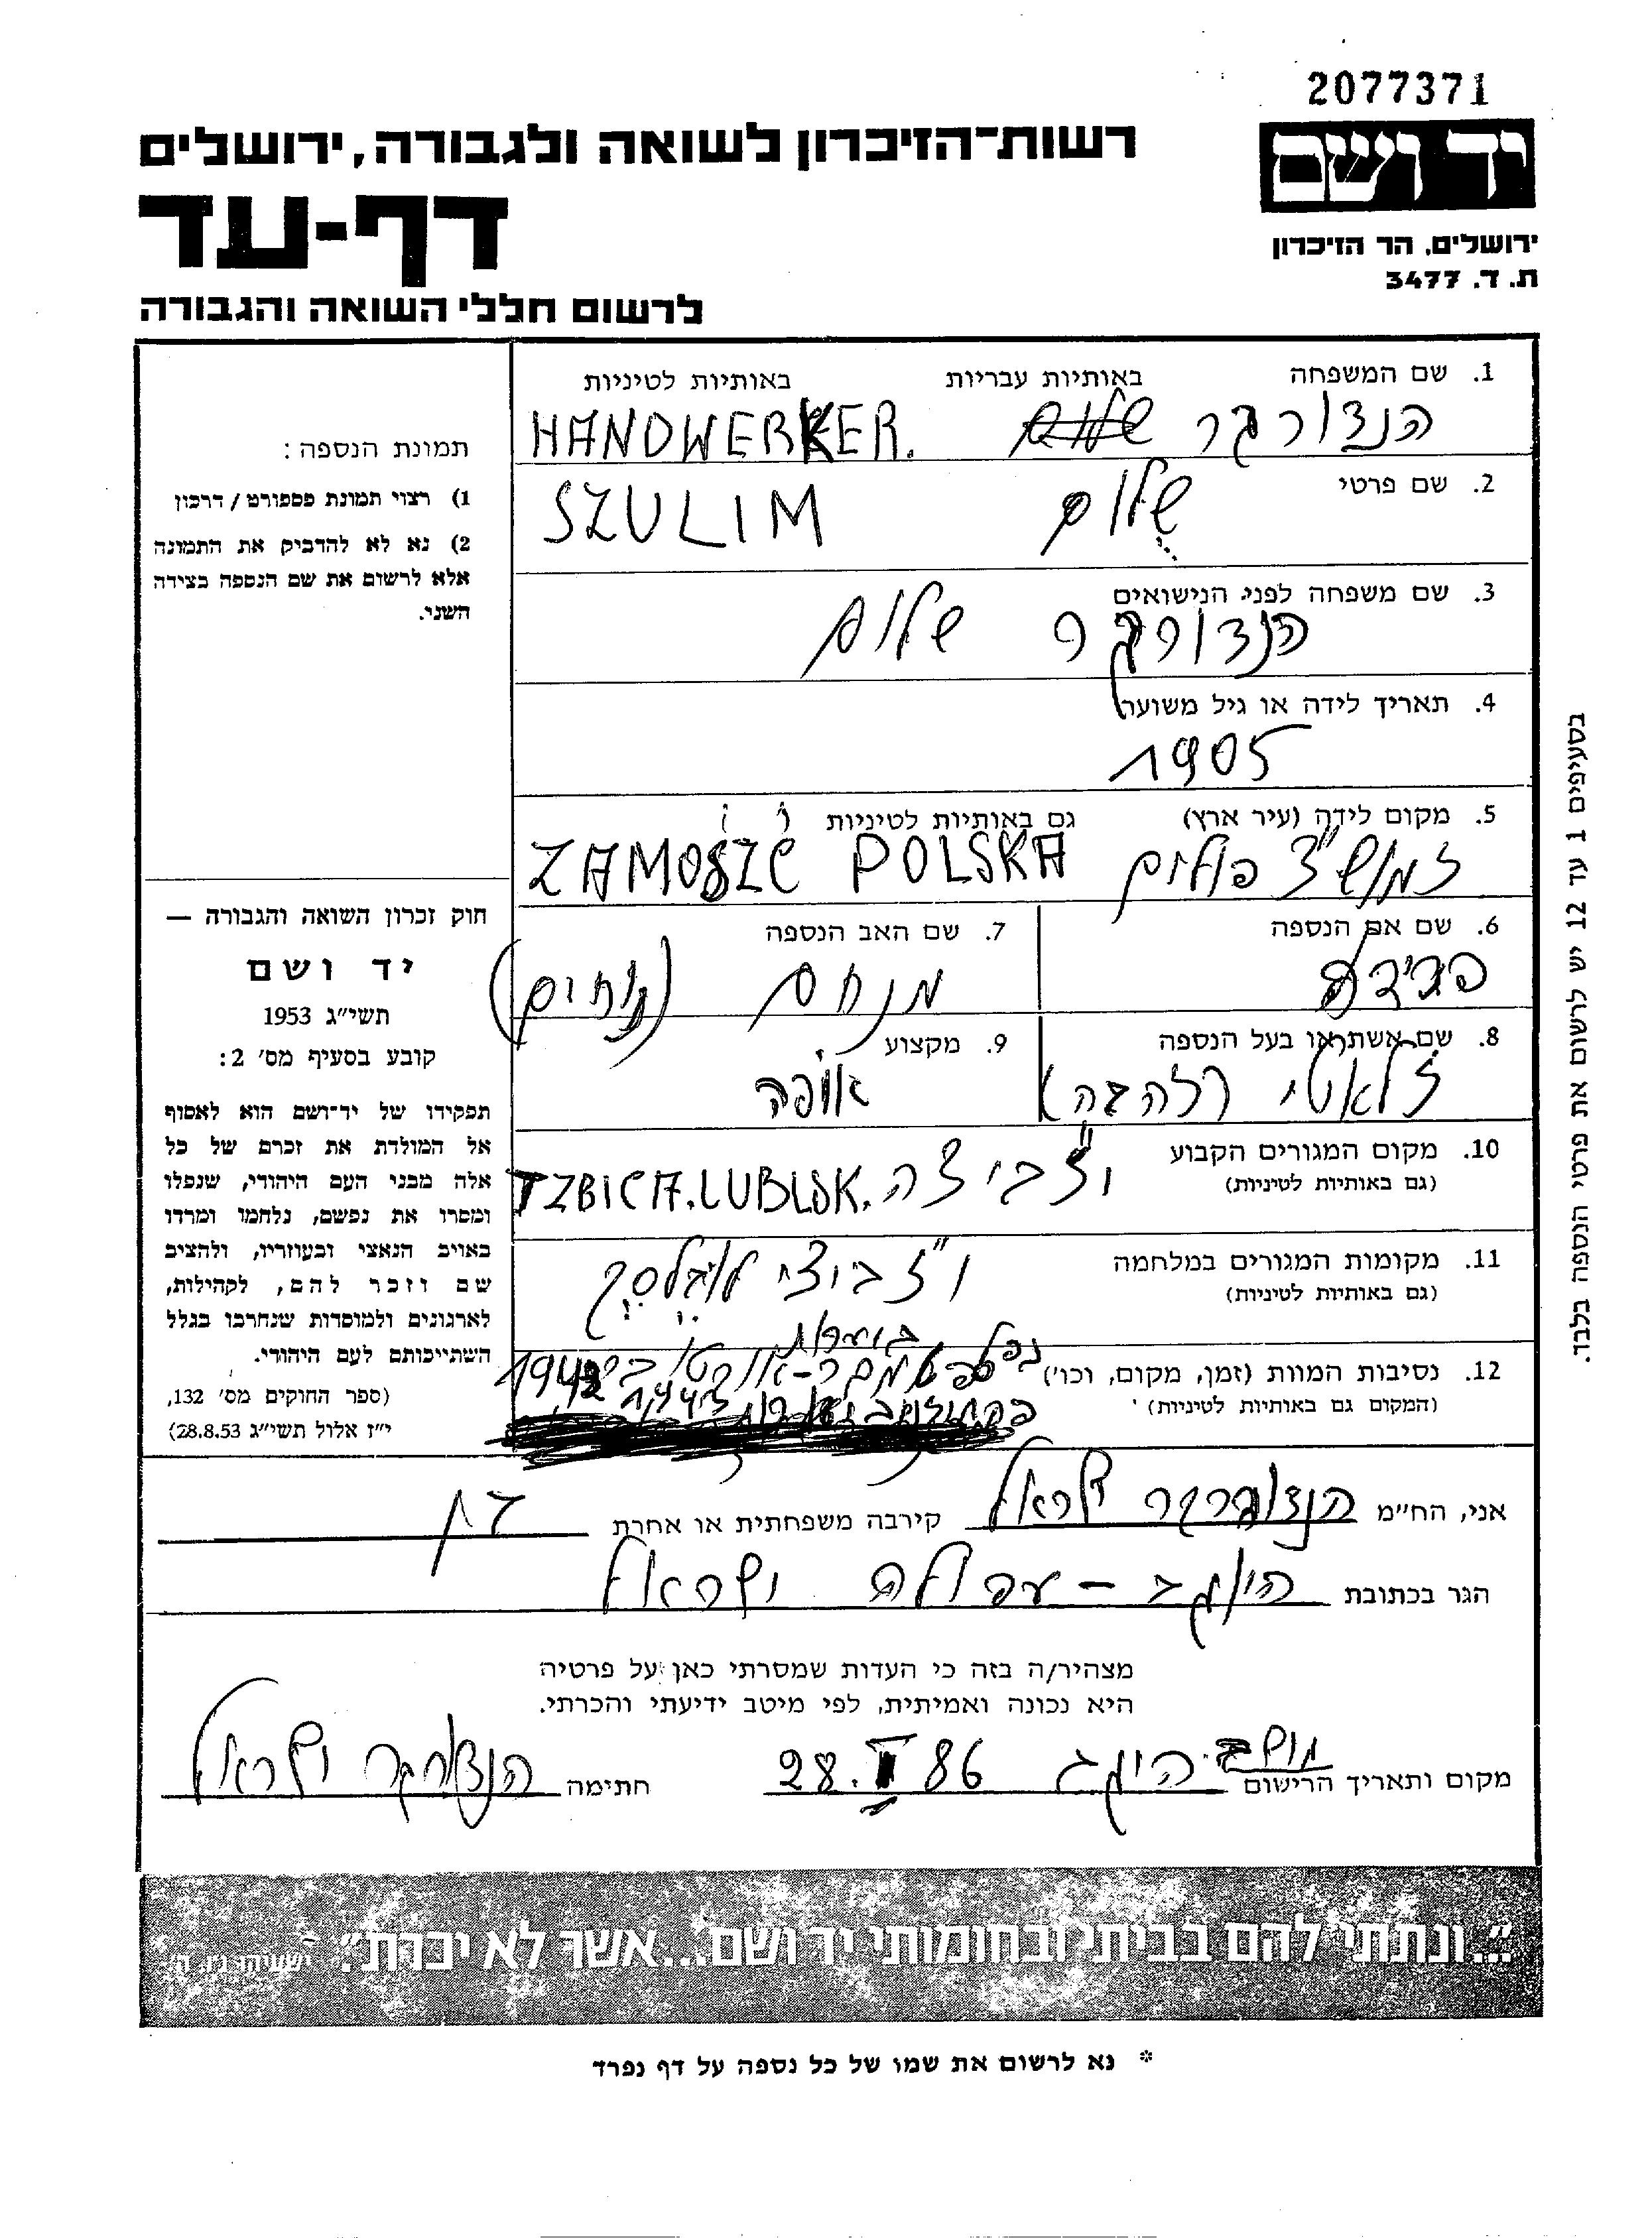 2077371
יד ושם
רשות-הזיכרון לשואה ולגבורה, ירושלים
דף-עד
לרשום חללי השואה והגבורה
ירושלים, הר הזיכרון
ת. ד. 3477
1. שם המשפחה באותיות עבריות באותיות לטיניות
הנדורקר שלום HANDWERKER.
2. שם פרטי
שלום SZULIM
3. שם משפחה לפני הנישואים
הנדורקר שלום
4. תאריך לידה או גיל משוער
1905
5. מקום לידה (עיר ארץ) גם באותיות לטיניות
זמושץ פולים ZAMOŚZĆ POLSKA
6. שם אם הנספה
פרידע
7. שם האב הנספה
מנחם (נחום)
8. שם אשתו או בעל הנספה
זלאטי (זהבה)
9. מקצוע
אופה
10. מקום המגורים הקבוע
(גם באותיות לטיניות)
איזביצה IZBICA.LUBLSK.
11. מקומות המגורים במלחמה
(גם באותיות לטיניות)
12. נסיבות המוות (זמן, מקום, וכו')
(המקום גם באותיות לטיניות)
1942
תמונת הנספה:
1) רצוי תמונת פספורט / דרכון
2) נא לא להדביק את התמונה
אלא לרשום את שם הנספה בצידה
השני.
חוק זכרון השואה והגבורה —
יד ושם
תשי"ג 1953
קובע בסעיף מס' 2:
תפקידו של יד-ושם הוא לאסוף
אל המולדת את זכרם של כל
אלה מבני העם היהודי, שנפלו
ומסרו את נפשם, נלחמו ומרדו
באויב הנאצי ובעוזריו, ולהציב
שם וזכר להם, לקהילות,
לארגונים ולמוסדות שנחרבו בגלל
השתייכותם לעם היהודי.
(ספר החוקים מס' 132,
י"ז אלול תשי"ג 28.8.53)
בסעיפים 1 עד 12 יש לרשום את פרטי הנספה בלבד.
אני, הח"מ הנדורקר ישראל קירבה משפחתית או אחרת בן
הגר בכתובת היוגב - עפולה ישראל
מצהיר/ה בזה כי העדות שמסרתי כאן על פרטיה
היא נכונה ואמיתית, לפי מיטב ידיעתי והכרתי.
מקום ותאריך הרישום מושב היוגב 28. 86 חתימה הנדורקר ישראל
"...ונתתי להם בביתי ובחומותי יד ושם...אשר לא יכרת". ישעיהו נו, ה'
* נא לרשום את שמו של כל נספה על דף נפרד